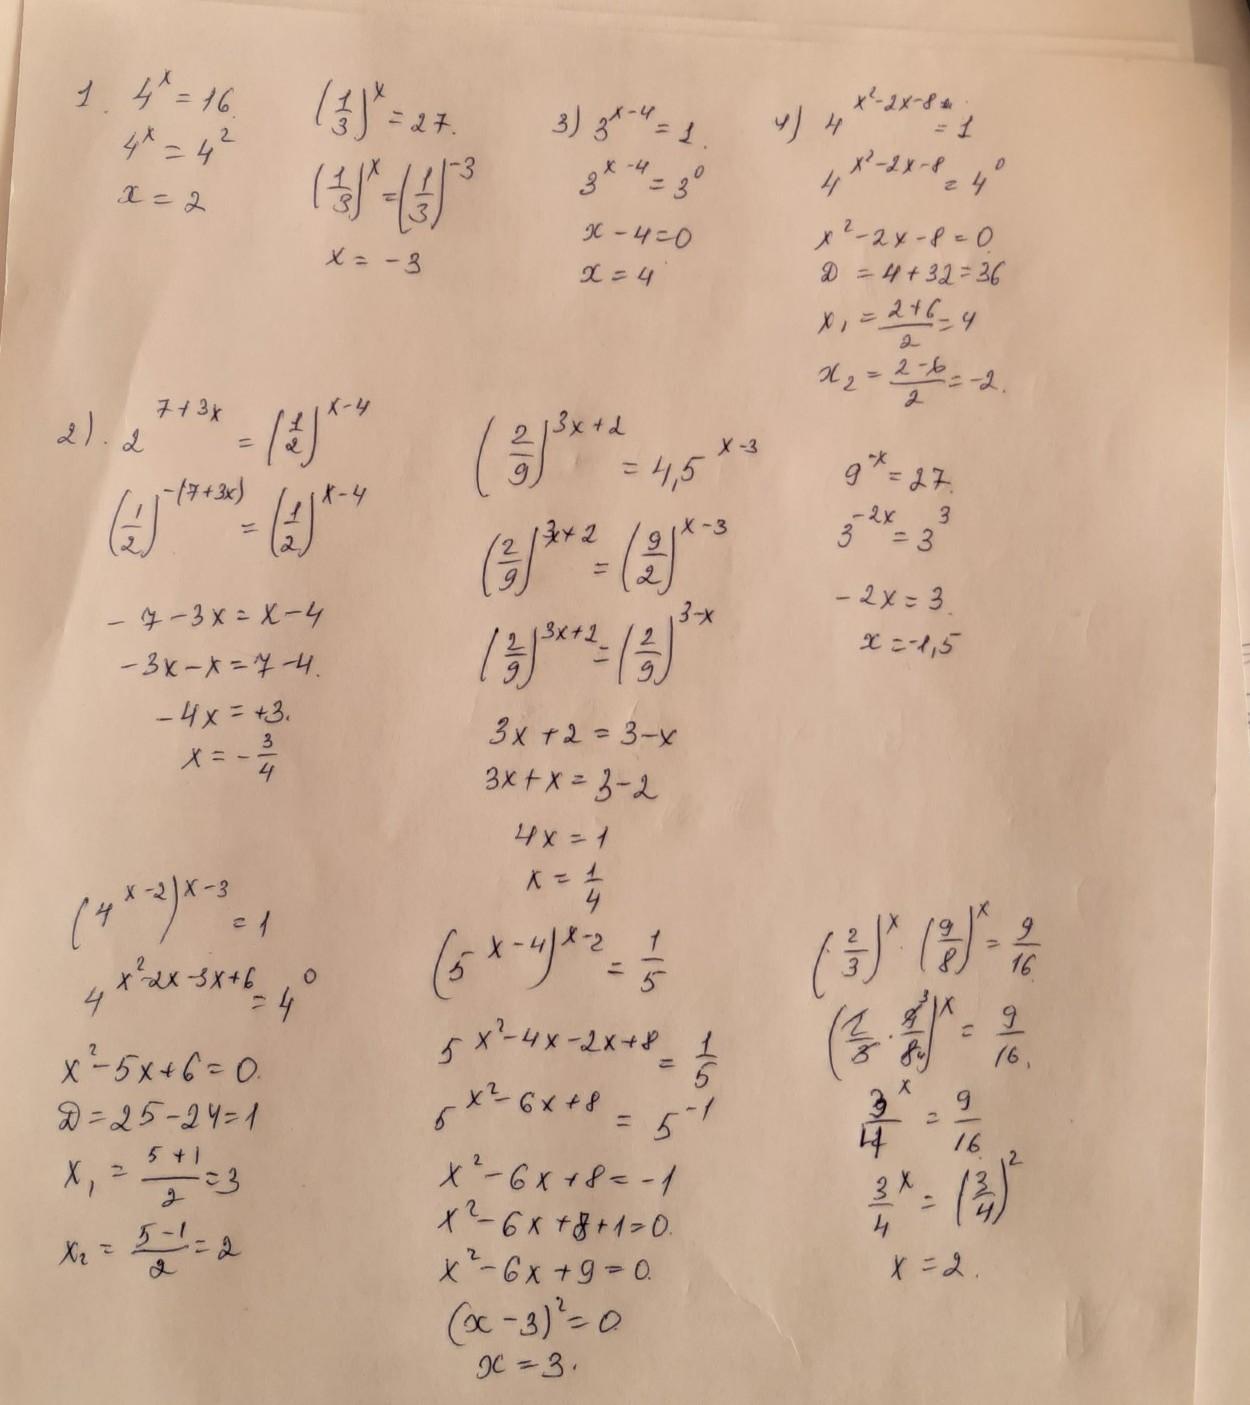 1. 4^x = 16
4^x = 4^2
x = 2
(1/3)^x = 27.
(1/3)^x = (1/3)^-3
x = -3
3) 3^x-4 = 1.
3^x-4 = 3^0
x - 4 = 0
x = 4
4) 4^x²-2x-8 = 1
4^x²-2x-8 = 4^0
x² - 2x - 8 = 0
D = 4 + 32 = 36
x₁ = (2+6)/2 = 4
x₂ = (2-6)/2 = -2.
2). 2^7+3x = (1/2)^x-4
(1/2)^-(7+3x) = (1/2)^x-4
- 7 - 3x = x - 4
-3x - x = 7 - 4.
- 4x = +3.
x = - 3/4
(2/9)^3x+2 = 4,5^x-3
(2/9)^3x+2 = (9/2)^x-3
(2/9)^3x+2 = (2/9)^3-x
3x + 2 = 3 - x
3x + x = 3 - 2
4x = 1
x = 1/4
9^-x = 27.
3^-2x = 3^3
- 2x = 3.
x = -1,5
(4^x-2)^x-3 = 1
4^x²-2x-3x+6 = 4^0
x² - 5x + 6 = 0.
D = 25 - 24 = 1
x₁ = (5+1)/2 = 3
x₂ = (5-1)/2 = 2
(5^x-4)^x-2 = 1/5
5^x²-4x-2x+8 = 1/5
5^x²-6x+8 = 5^-1
x² - 6x + 8 = -1
x² - 6x + 8 + 1 = 0.
x² - 6x + 9 = 0.
(x - 3)² = 0
x = 3.
(2/3)^x · (9/8)^x = 9/16
(2/3 · 9/8)^x = 9/16.
3/4^x = 9/16
3/4^x = (3/4)²
x = 2.